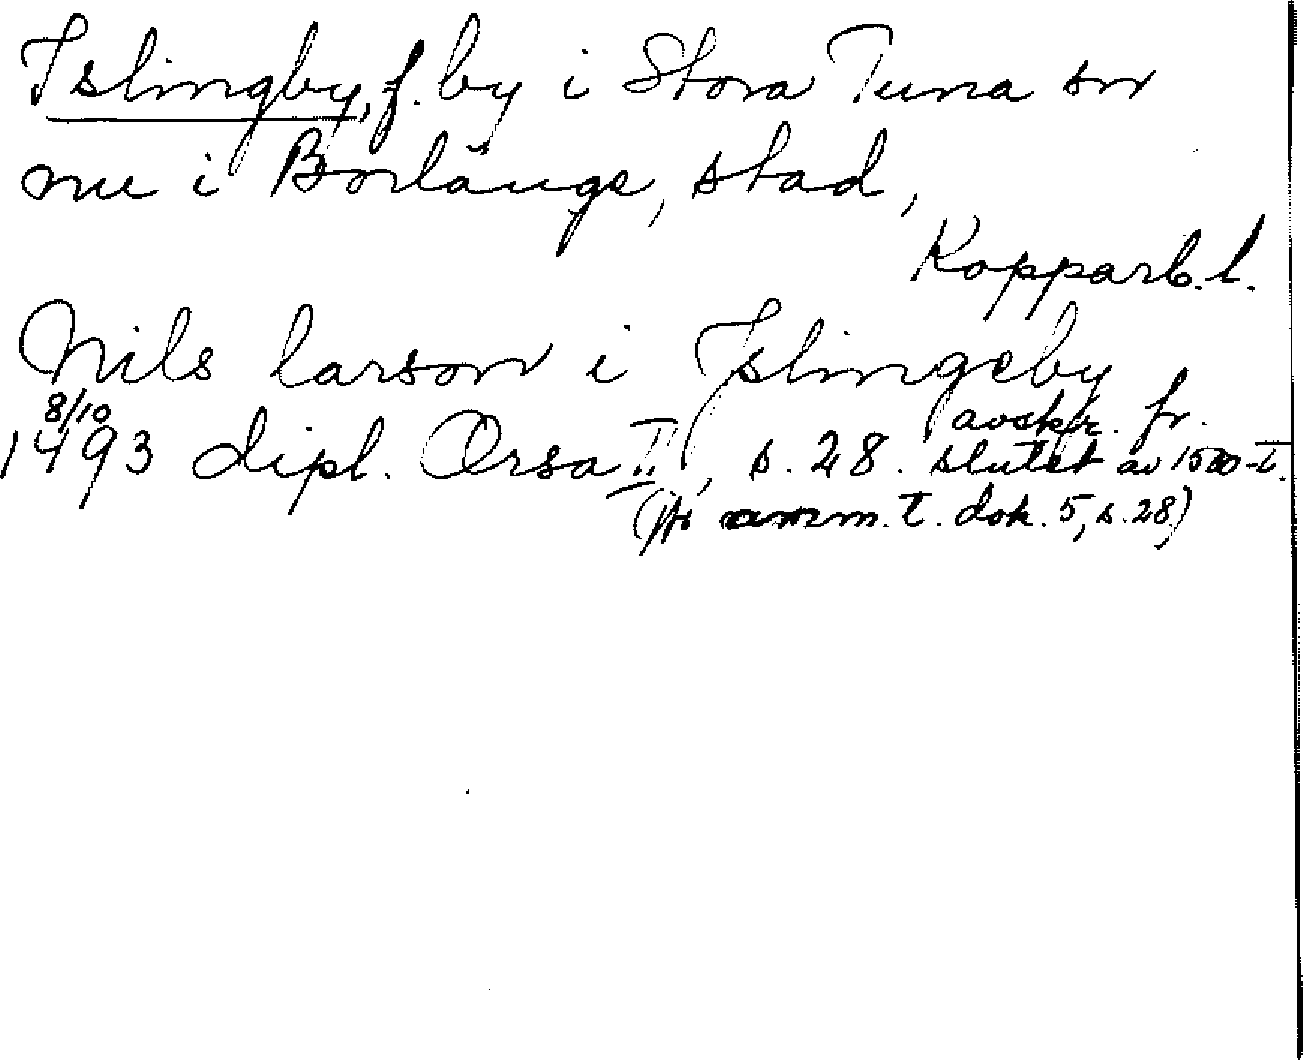 Islingby, f. by i Stora Tuna sn
nu i Borlänge, stad,
Kopparb. l.
Nils larson i Islingeby
8/10
1493 dipl. Orsa II, s. 28. avskr. fr.
slutet av 1500-t.
(jfr anm. t. dok. 5, s. 28)